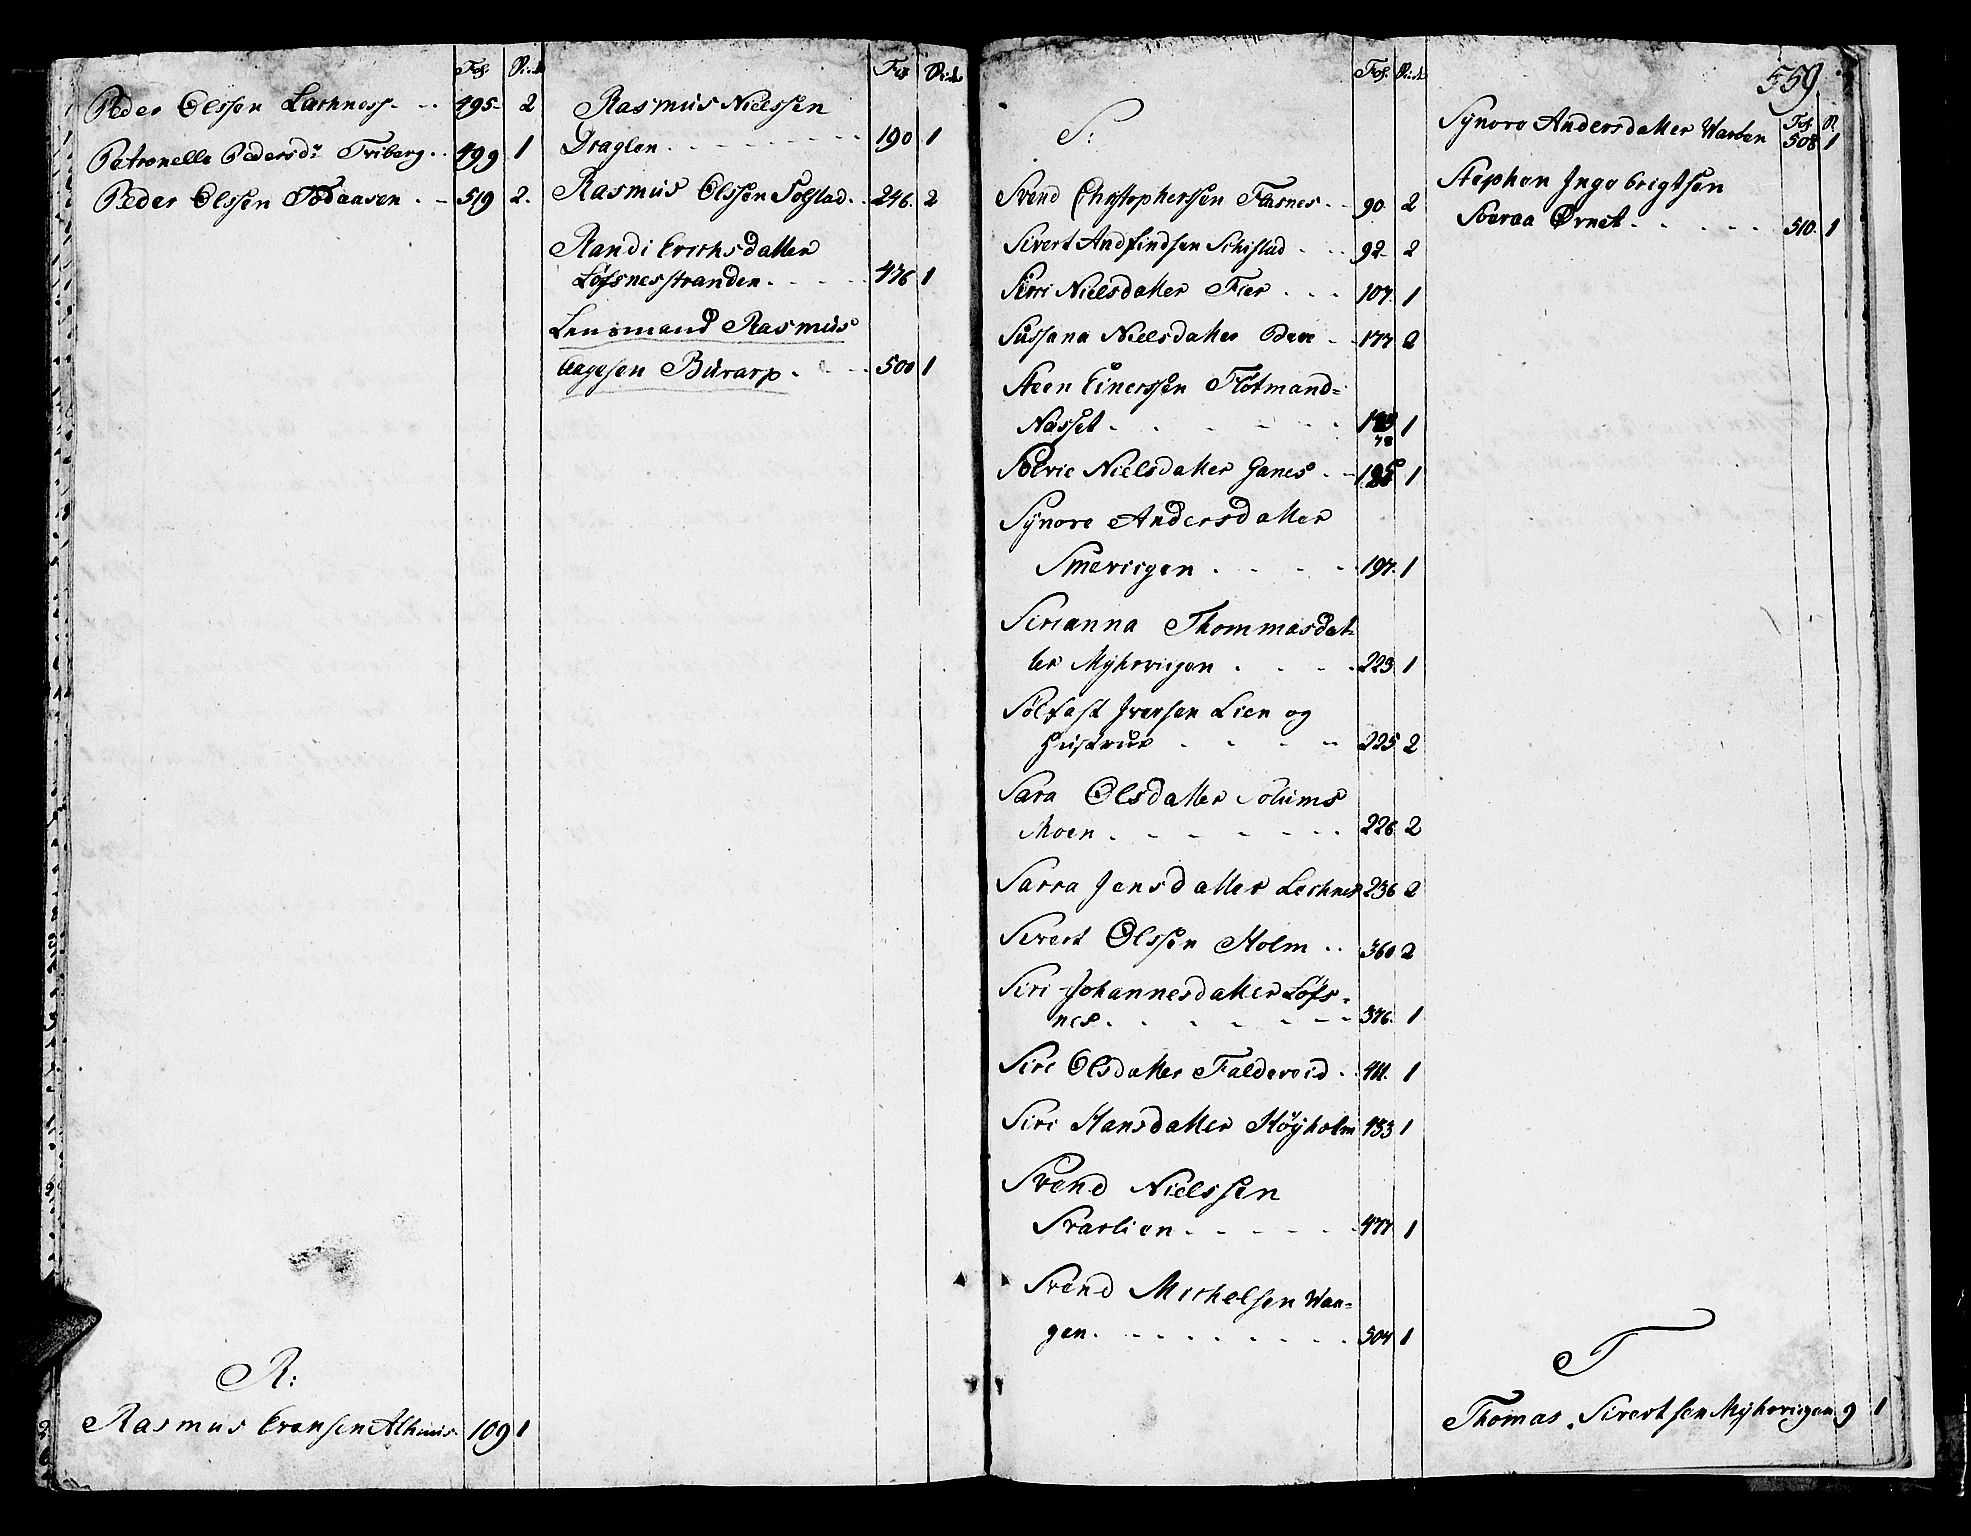 Fol. No:
Peder Olssen Lechness 495 2
Petronelle Pedersdr Friberg 499 1
Peder Olssen 519 2.
R:
Rasmus 109 1
Fol No:
Rasmus Nielssen
Draglen 190 1
Rasmus Olssen Solstad 246 2
Randi Erichsdatter
Løfsnesstranden 476 1
Lensmand Rasmus
Aagesen Burarp 500 1
Fol. No:
S:
Svend Christophersen Fasnes 90 2
Sivert Andfindsen Schistad 92 2
Sirri Nielsdatter Fier 107 1
Sussana Nielsdatter 177 2
Steen Einerssen Flotmand=
Nasset 1
Solvie Nielsdatter Ganes 1
Synove Andersdatter
Smevigen 197 1
Sirianna Thommasdat=
ter Myhrvigen 223 1
Solfast Iversen Lien og
Hustrue 225 2
Sara Olsdatter Solums
Moen 226 2
Sarra Jensdatter Lechnes 236 2
Sivert Olssen Holm 360 2
Siri Johannesdatter Løfs-
nes 376 1
Siri Olsdatter Faldereid 411 1
Siri Hansdatter Høyholm 453 1
Svend Nielssen
Svartien 477 1
Svend Michelsen Waa=
gen 504 1
559
Fol No
Synove Andersdatter Warben 508 1
Stephen Ingebrigtsen
Soeraa Ørnet 510 1
T
Thomas Sivertsen Myhrvigen 9 1